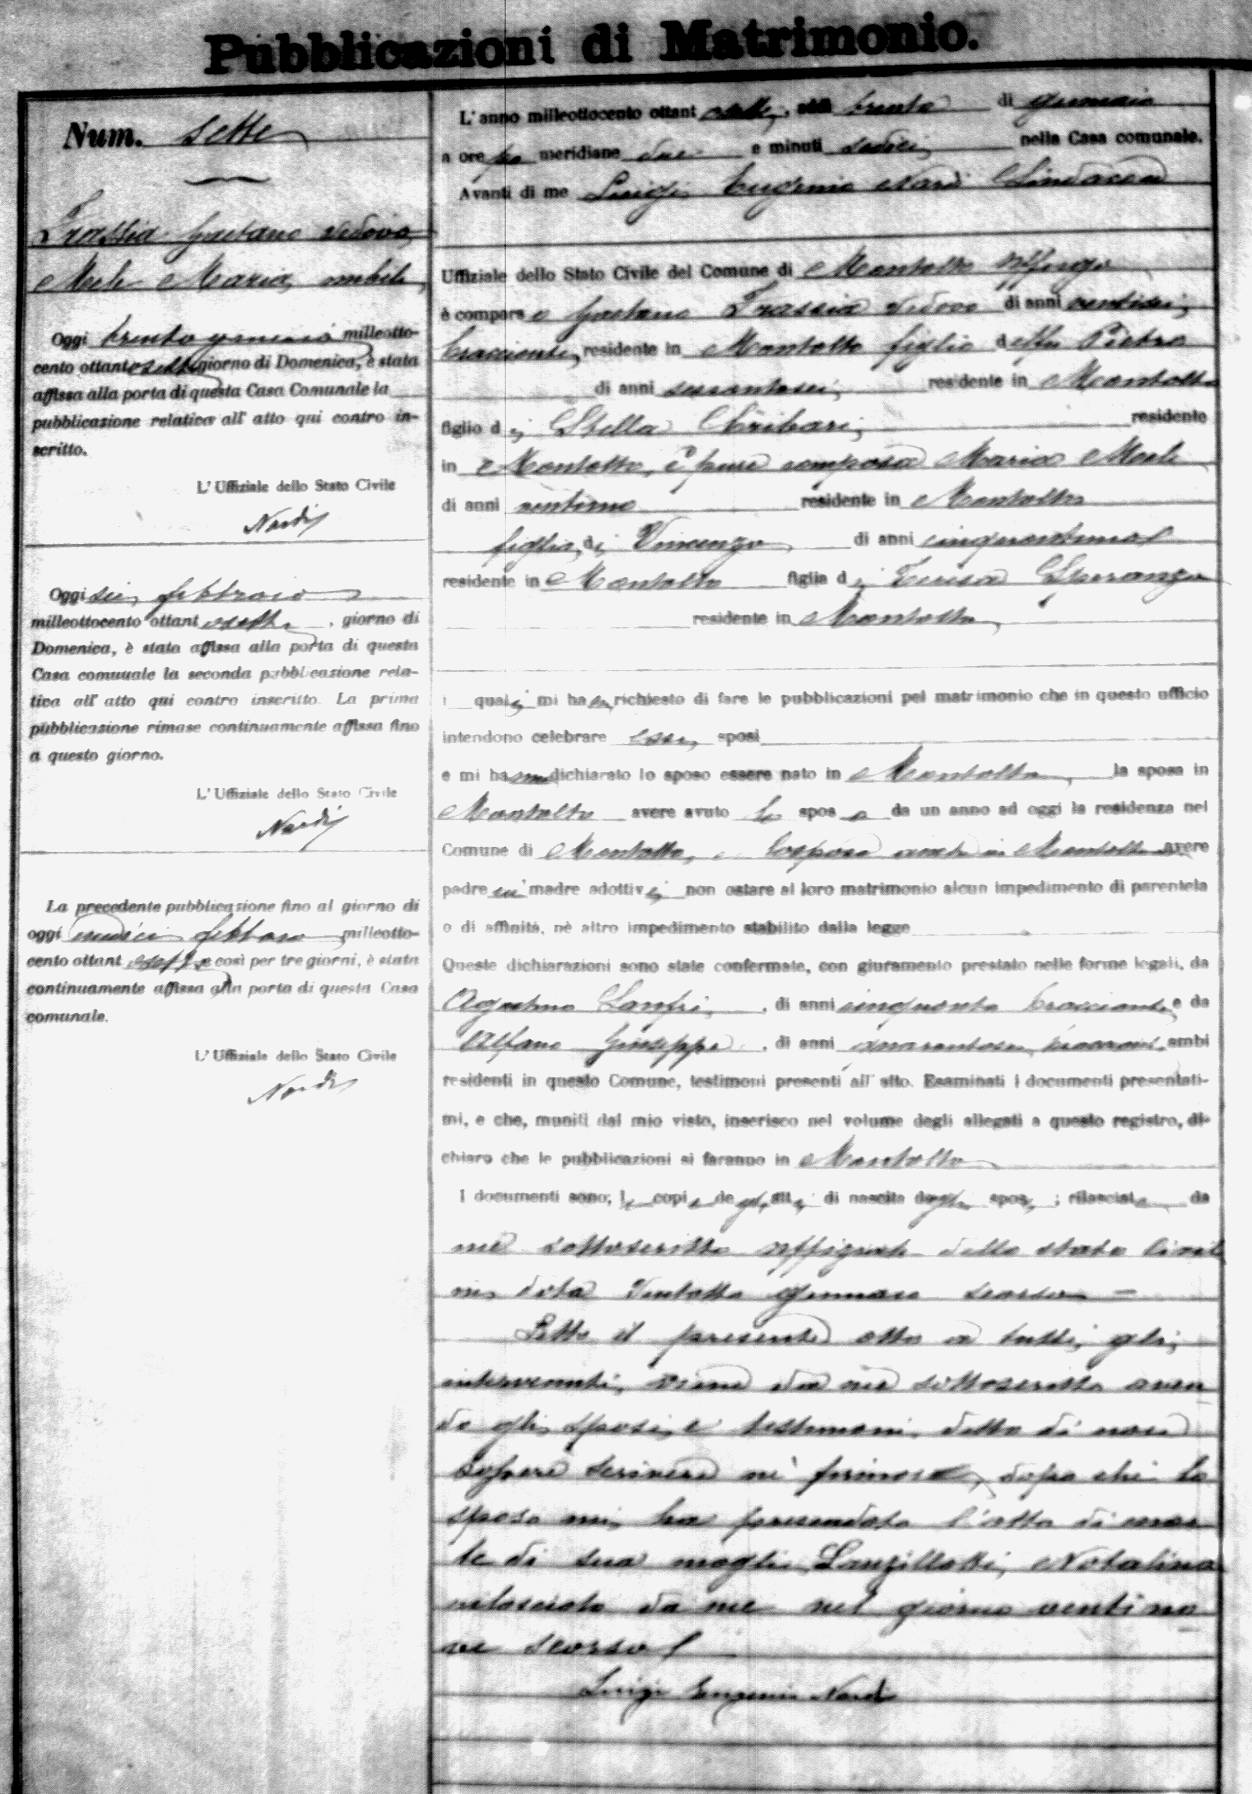 Pubblicazioni di Matrimonio.
Num. Sette
Trassia Gaetano vedovo
Mele Maria nubile
Oggi trenta gennaio milleotto-
cento ottantasette giorno di Domenica, è stata
affissa alla porta di questa Casa Comunale la
pubblicazione relativa all' atto qui contro in-
scritto.
L' Uffiziale dello Stato Civile
Nardi
Oggi sei febbraio
milleottocento ottantasette, giorno di
Domenica, è stata affissa alla porta di questa
Casa comunale la seconda pubblicazione rela-
tiva all' atto qui contro inscritto. La prima
pubblicazione rimase continuamente affissa fino
a questo giorno.
L' Uffiziale dello Stato Civile
Nardi
La precedente pubblicazione fino al giorno di
oggi febbraio milleotto-
cento ottantasette e così per tre giorni, è stata
continuamente affissa alla porta di questa Casa
comunale.
L' Uffiziale dello Stato Civile
Nardi
L'anno milleottocento ottantasette, addì trenta di gennaio
a ore po meridiane due e minuti sedici nella Casa comunale.
Avanti di me Luigi Eugenio Nardi Sindaco
Uffiziale dello Stato Civile del Comune di Montalto Uffugo
è comparso Gaetano Trassia vedovo di anni ventisei,
bracciante, residente in Montalto figlio del fu Pietro
di anni sessantasei, residente in Montalto
figlio di Stella residente
in Montalto, è pure comparsa Maria Mele
di anni ventuno residente in Montalto
figlia di Vincenzo di anni cinquantuno
residente in Montalto figlia di Teresa Speranza
residente in Montalto,
i quali mi hanno richiesto di fare le pubblicazioni pel matrimonio che in questo ufficio
intendono celebrare essi sposi
e mi hanno dichiarato lo sposo essere nato in Montalto, la sposa in
Montalto avere avuto lo sposo da un anno ad oggi la residenza nel
Comune di Montalto, e la sposa anche in Montalto avere
padre nè madre adottivi, non ostare al loro matrimonio alcun impedimento di parentela
o di affinità, nè altro impedimento stabilito dalla legge
Queste dichiarazioni sono state confermate, con giuramento prestato nelle forme legali, da
Agostino Lanfri, di anni cinquanta bracciante e da
Alfano Giuseppe, di anni quarantasei, ambi
residenti in questo Comune, testimoni presenti all' atto. Esaminati i documenti presentati-
mi, e che, muniti dal mio visto, inserisco nel volume degli allegati a questo registro, di-
chiaro che le pubblicazioni si faranno in Montalto
I documenti sono; le copie degli atti di nascita degli sposi; rilasciate da
me sottoscritto uffiziale dello stato civile
in data ventotto gennaro scorso –
Letto il presente atto a tutti gli
intervenuti, viene da me sottoscritto aven
do gli sposi, e testimoni, detto di non
sapere scrivere nè firmare, dopo che lo
sposo mi ha presentato l'atto di mor
te di sua moglie Lanzillotti Natalina
rilasciato da me nel giorno ventino
ve scorso
Luigi Eugenio Nardi